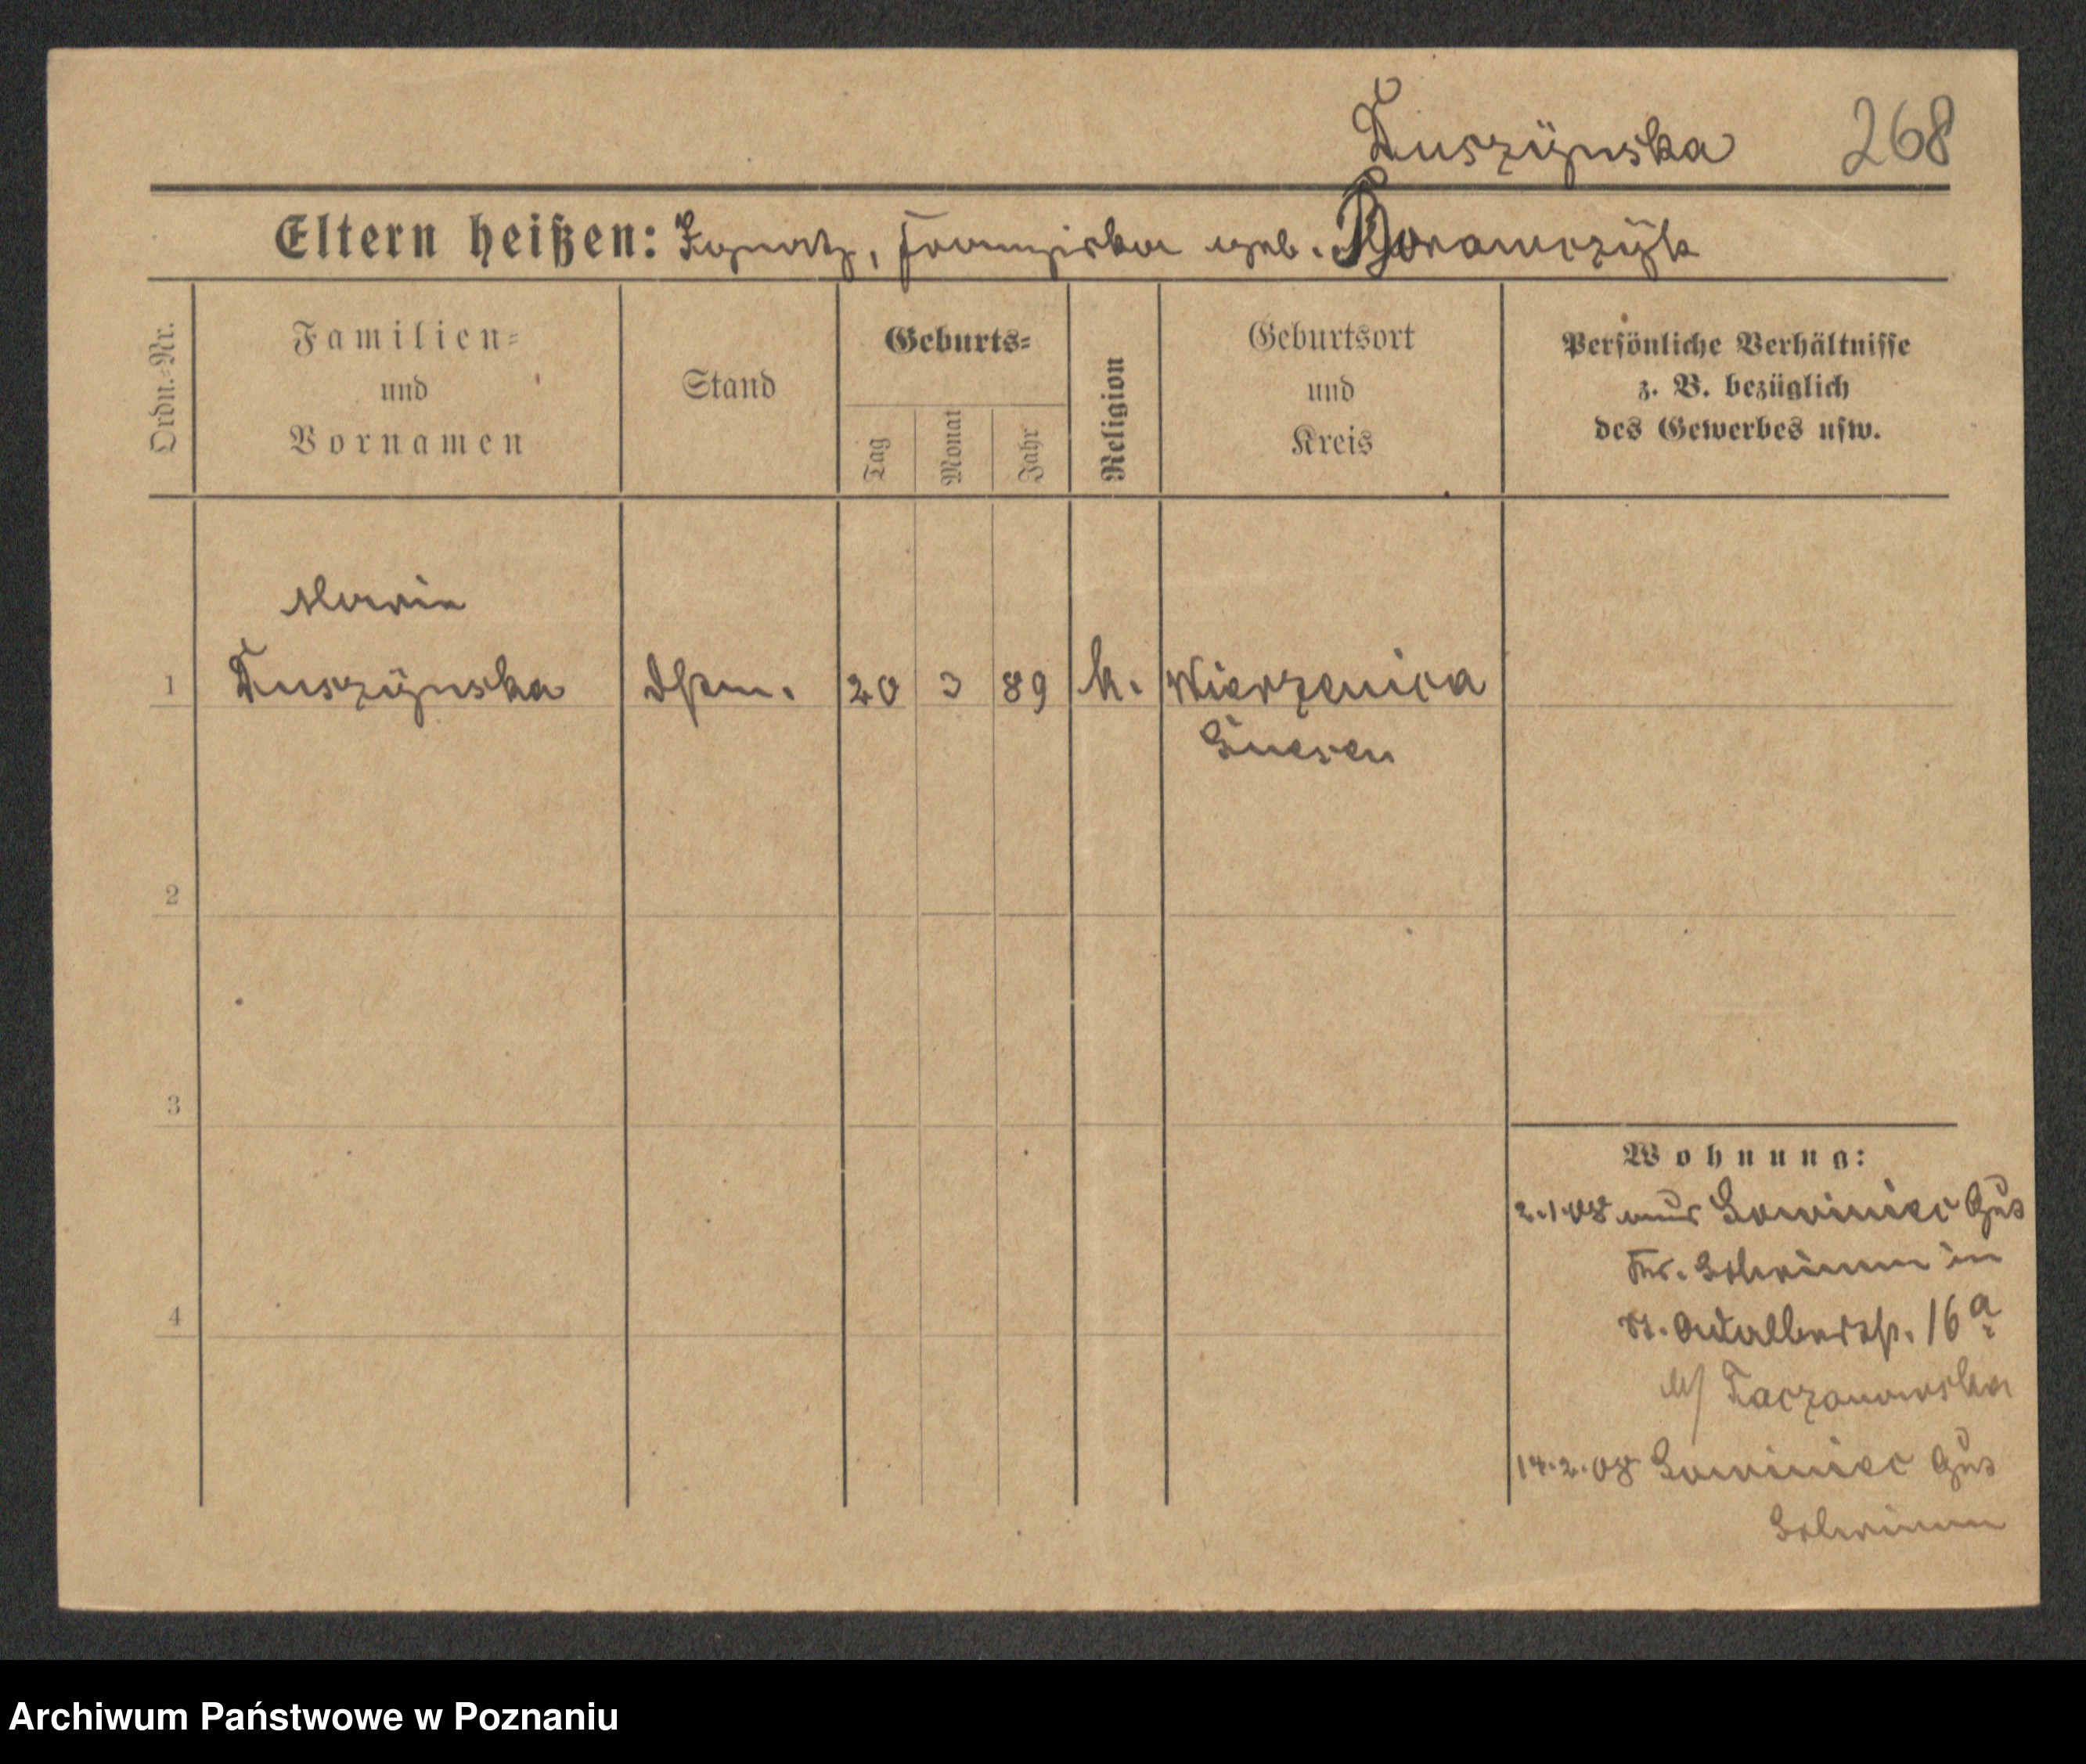 Duszÿnska 268
Eltern heißen: Ignatz, Franziska geb.
Ordn.-Nr.
Familien-
und
Vornamen
Stand
Geburts-
Tag
Monat
Jahr
Religion
Geburtsort
und
Kreis
Persönliche Verhältnisse
z. B. bezüglich
des Gewerbes usw.
Maria
1 Duszÿnska 20 3 89 k. Wierzenica
Gnesen
2
3
4
Wohnung:
2.1.08 aus Gut
Kr. Schrimm in
St. Adalbertstr. 16a
b/ Taczanowska
14.2.08 Gut
Schrimm
Archiwum Państwowe w Poznaniu